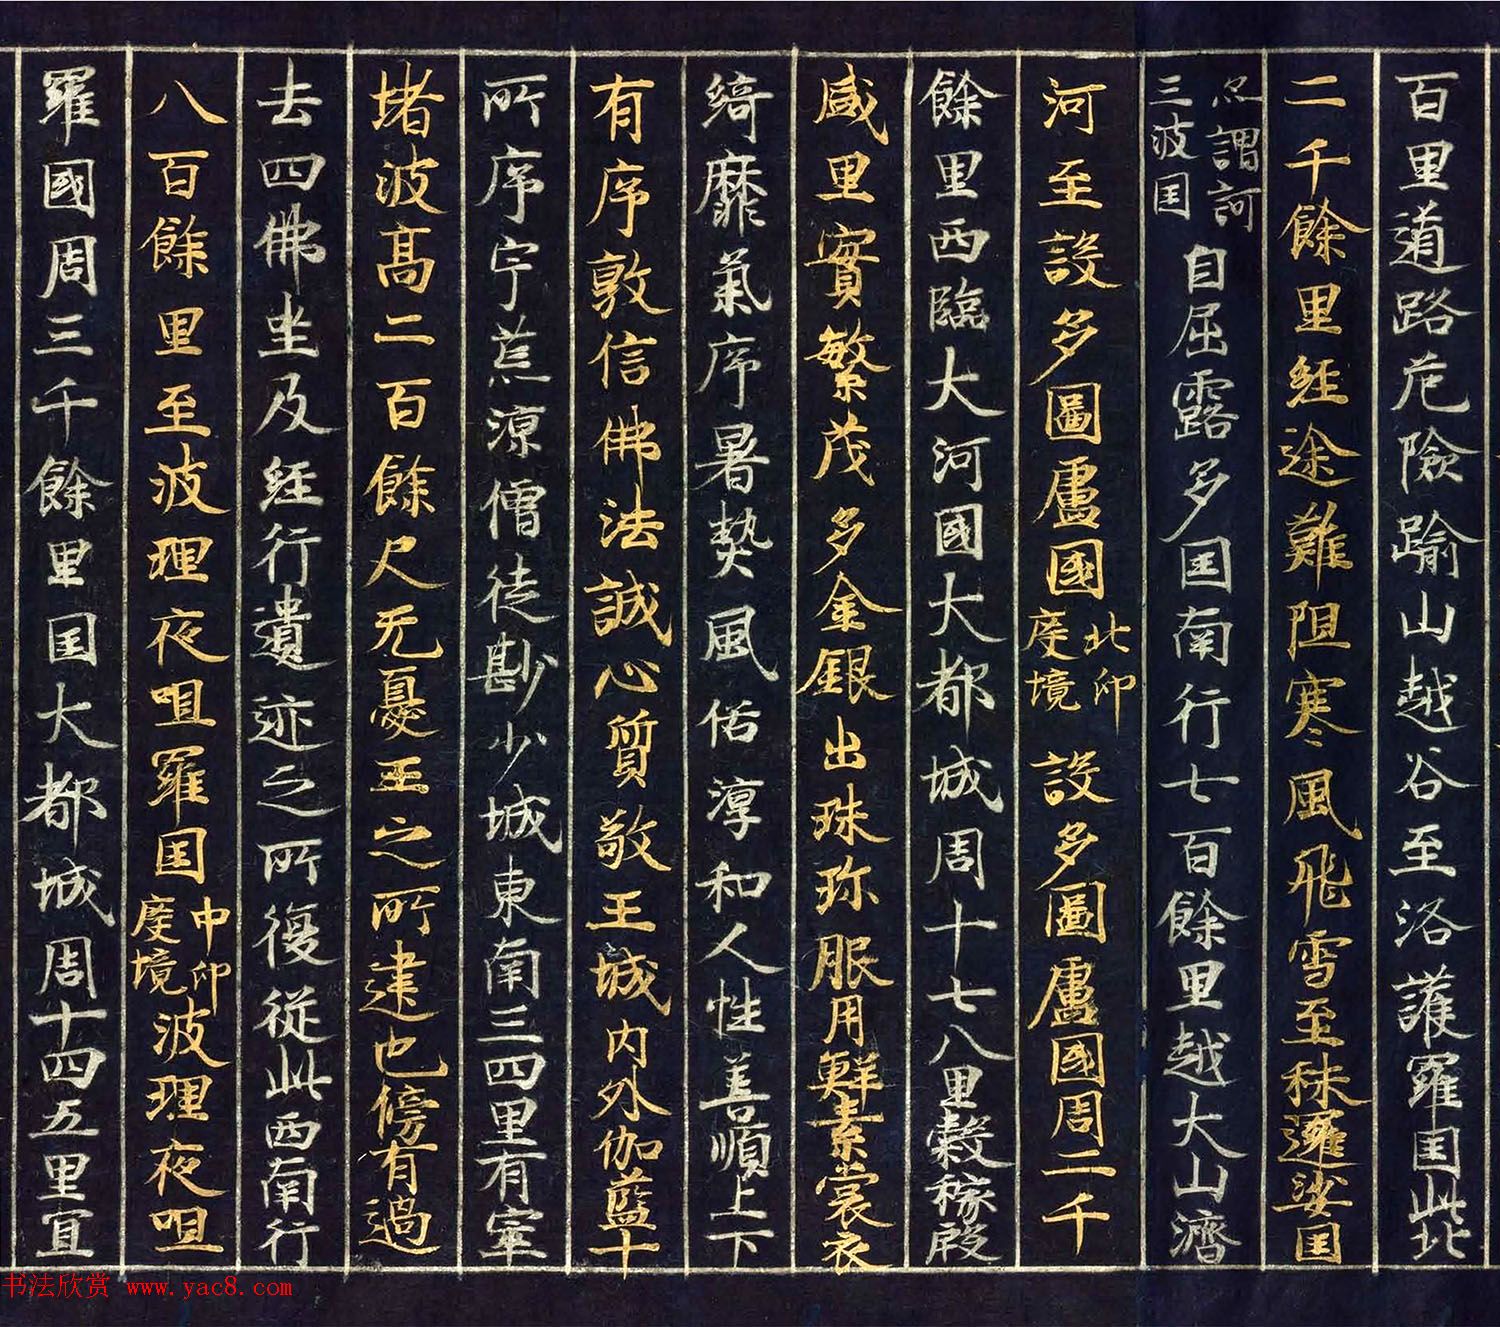 百里道路危險踰山越谷至洛護羅国此北
二千餘里経途難阻寒風飛雪至秣邏娑国
亦謂訶
三波国
自屈露多国南行七百餘里越大山濟
河至設多圖盧國
北印
度境
設多圖盧國周二千
餘里西臨大河國大都城周十七八里穀稼殷
盛里實繁茂多金銀出珠珎服用鮮素裳衣
綺靡氣序暑熱風俗淳和人性善順上下
有序敦信佛法誠心質敬王城内外伽藍十
所序宇荒涼僧徒尠少城東南三四里有窣
堵波髙二百餘尺无憂王之所建也傍有過
去四佛坐及経行遺迹之所復從此西南行
八百餘里至波理夜呾羅国
中印
度境
波理夜呾
羅國周三千餘里国大都城周十四五里宜
书法欣赏 www.yac8.com